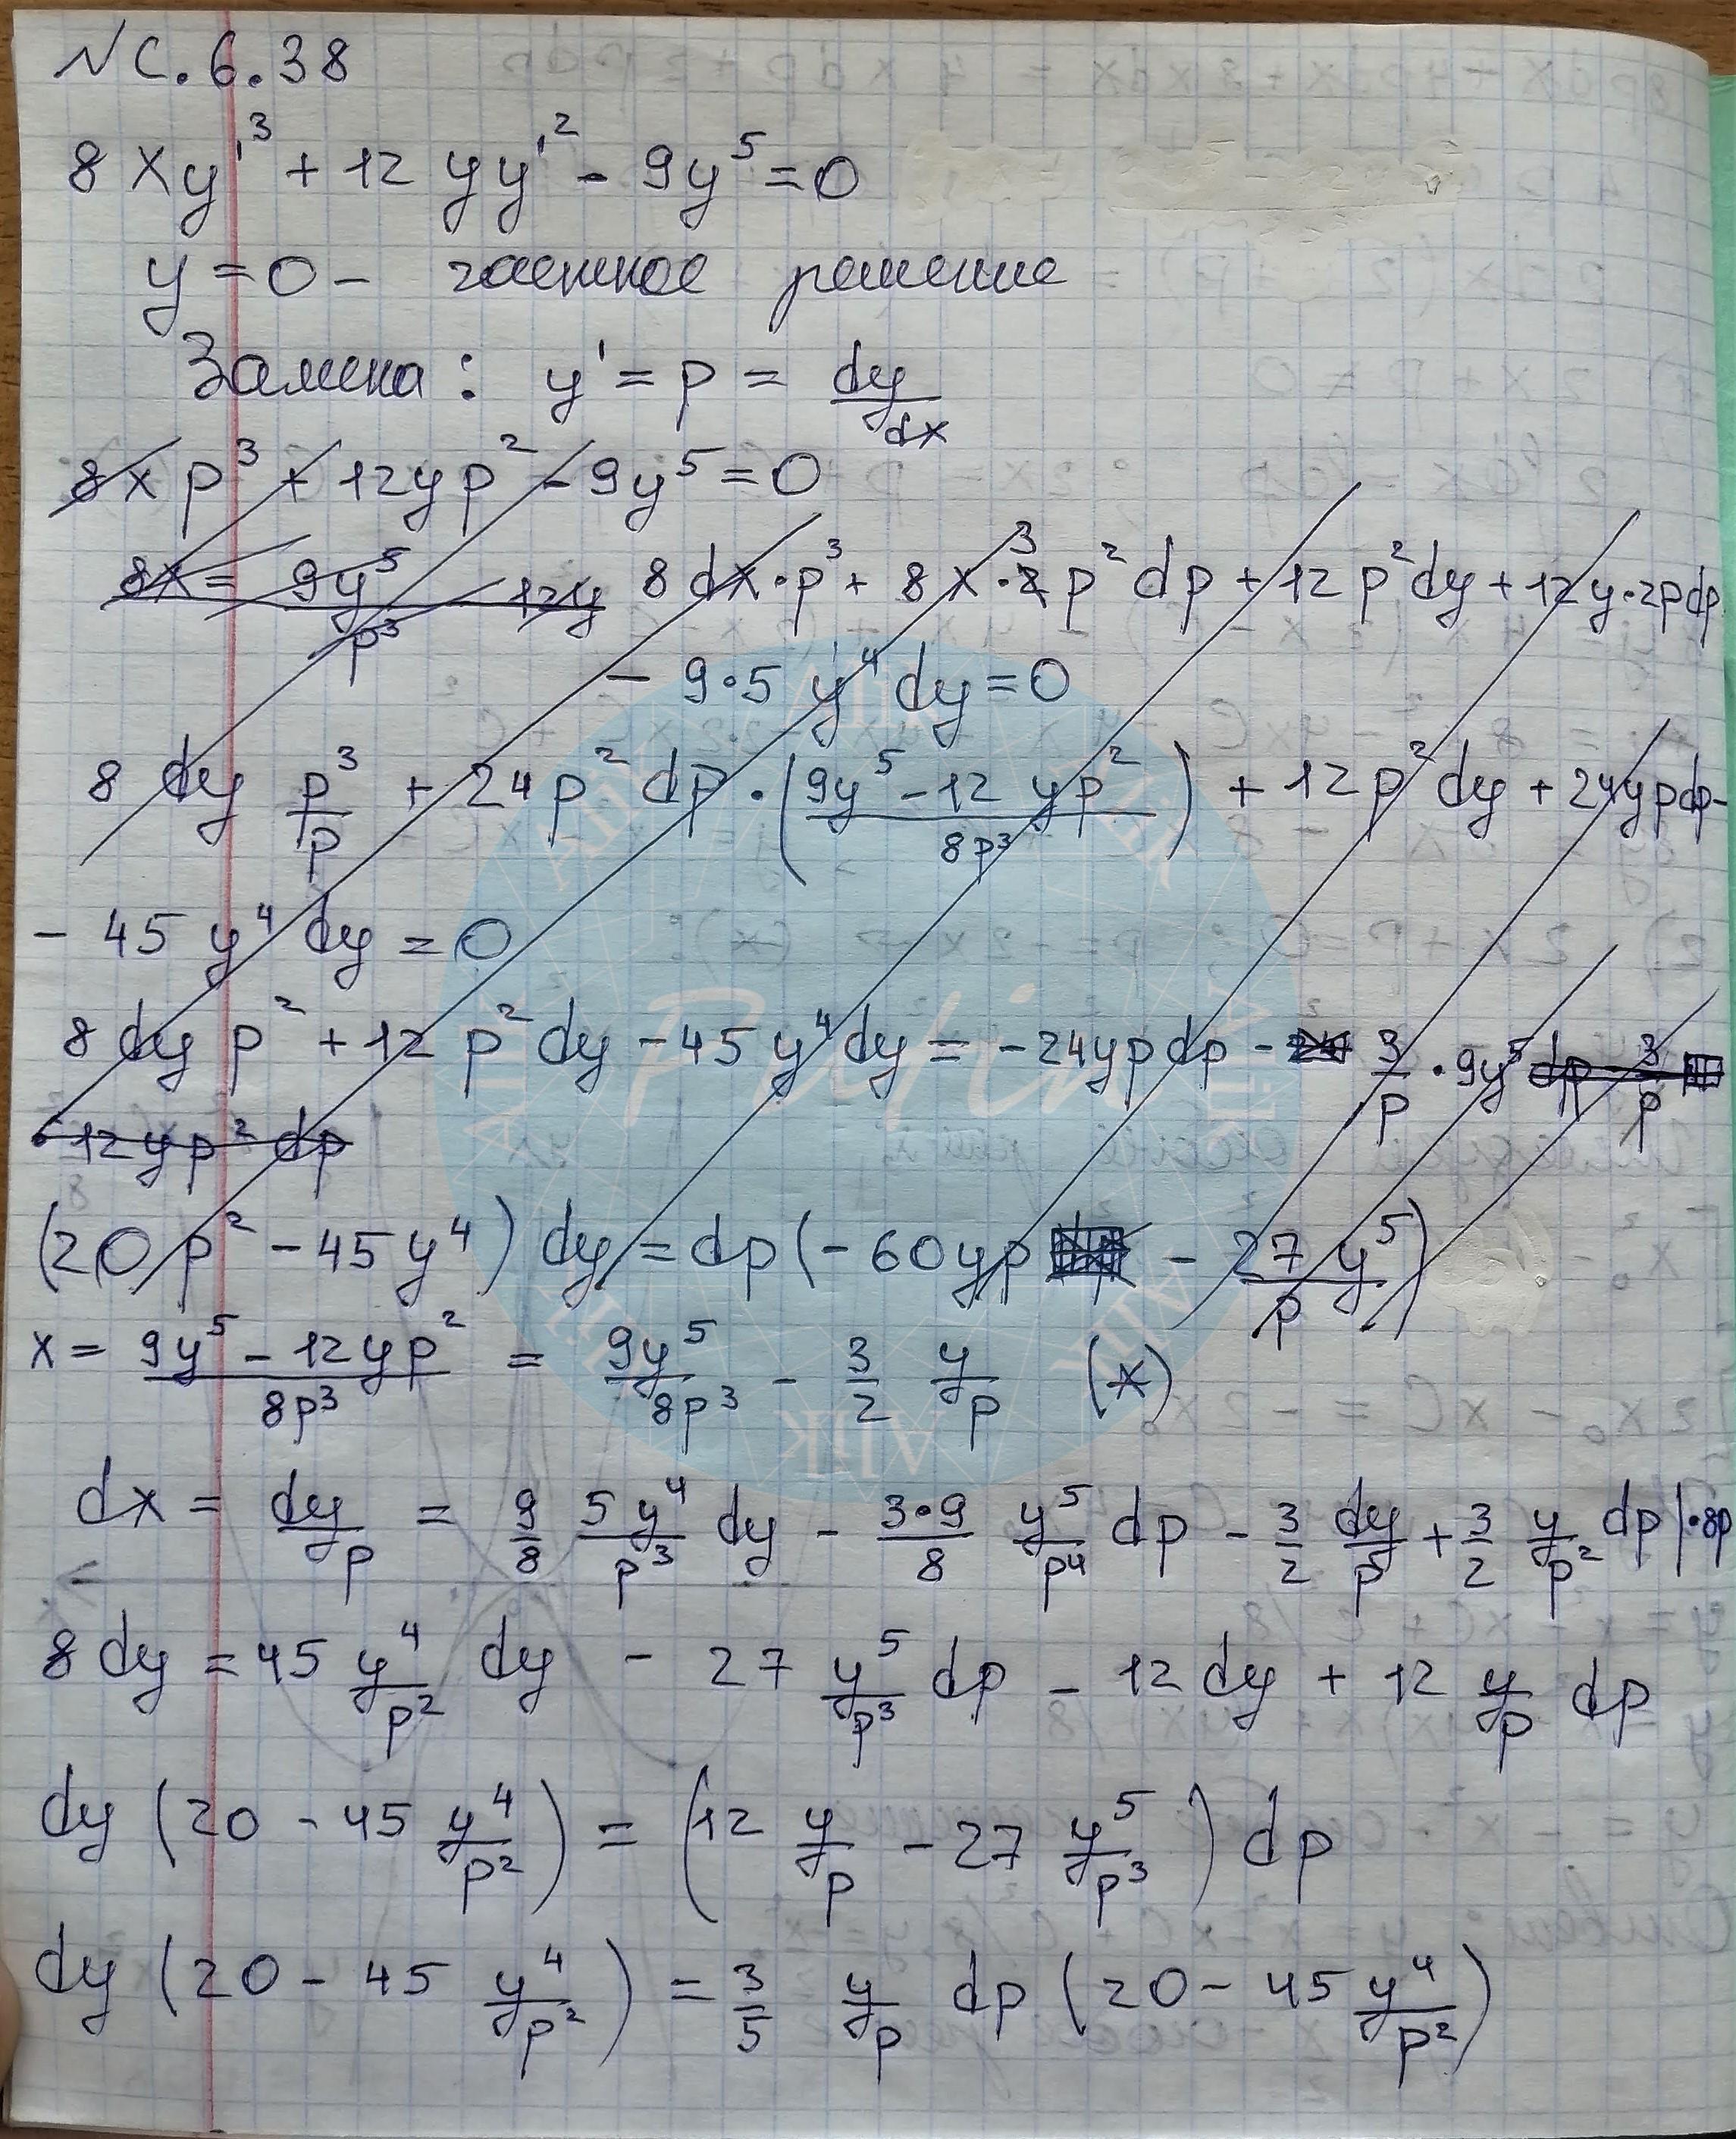 № С.6.38
8xy'³ + 12yy'² - 9y⁵ = 0
y = 0 - частное решение
Замена: y' = p = dy/dx
8xp³ + 12yp² - 9y⁵ = 0
8x = 9y⁵/p³ - 12y 8dx·p³ + 8x·3p²dp + 12p²dy + 12y·2pdp
- 9·5y⁴dy = 0
8dy p³/p + 24p²dp·((9y⁵ - 12yp²)/8p³) + 12p²dy + 24ypdp -
- 45y⁴dy = 0
8dy p² + 12p²dy - 45y⁴dy = -24ypdp - 3/p · 9y⁵ dp - 3/p
· 12yp²dp
(20p² - 45y⁴)dy = dp(-60yp - 27y⁵/p)
x = (9y⁵ - 12yp²)/8p³ = 9y⁵/8p³ - 3/2 y/p (*)
dx = dy/p = 9/8 5y⁴/p³ dy - 3·9/8 y⁵/p⁴ dp - 3/2 dy/p + 3/2 y/p² dp |·8p
8dy = 45 y⁴/p² dy - 27 y⁵/p³ dp - 12dy + 12 y/p dp
dy(20 - 45 y⁴/p²) = (12 y/p - 27 y⁵/p³)dp
dy(20 - 45 y⁴/p²) = 3/5 y/p dp(20 - 45 y⁴/p²)
Putin
AliK
AliK
AliK
AliK
AliK
AliK
AliK
AliK